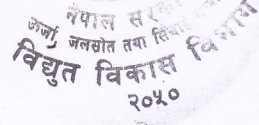 नेपाल सर
ऊर्जा, जलस्रोत तथा सिंचाई
विद्युत विकास विभाग
२०५०